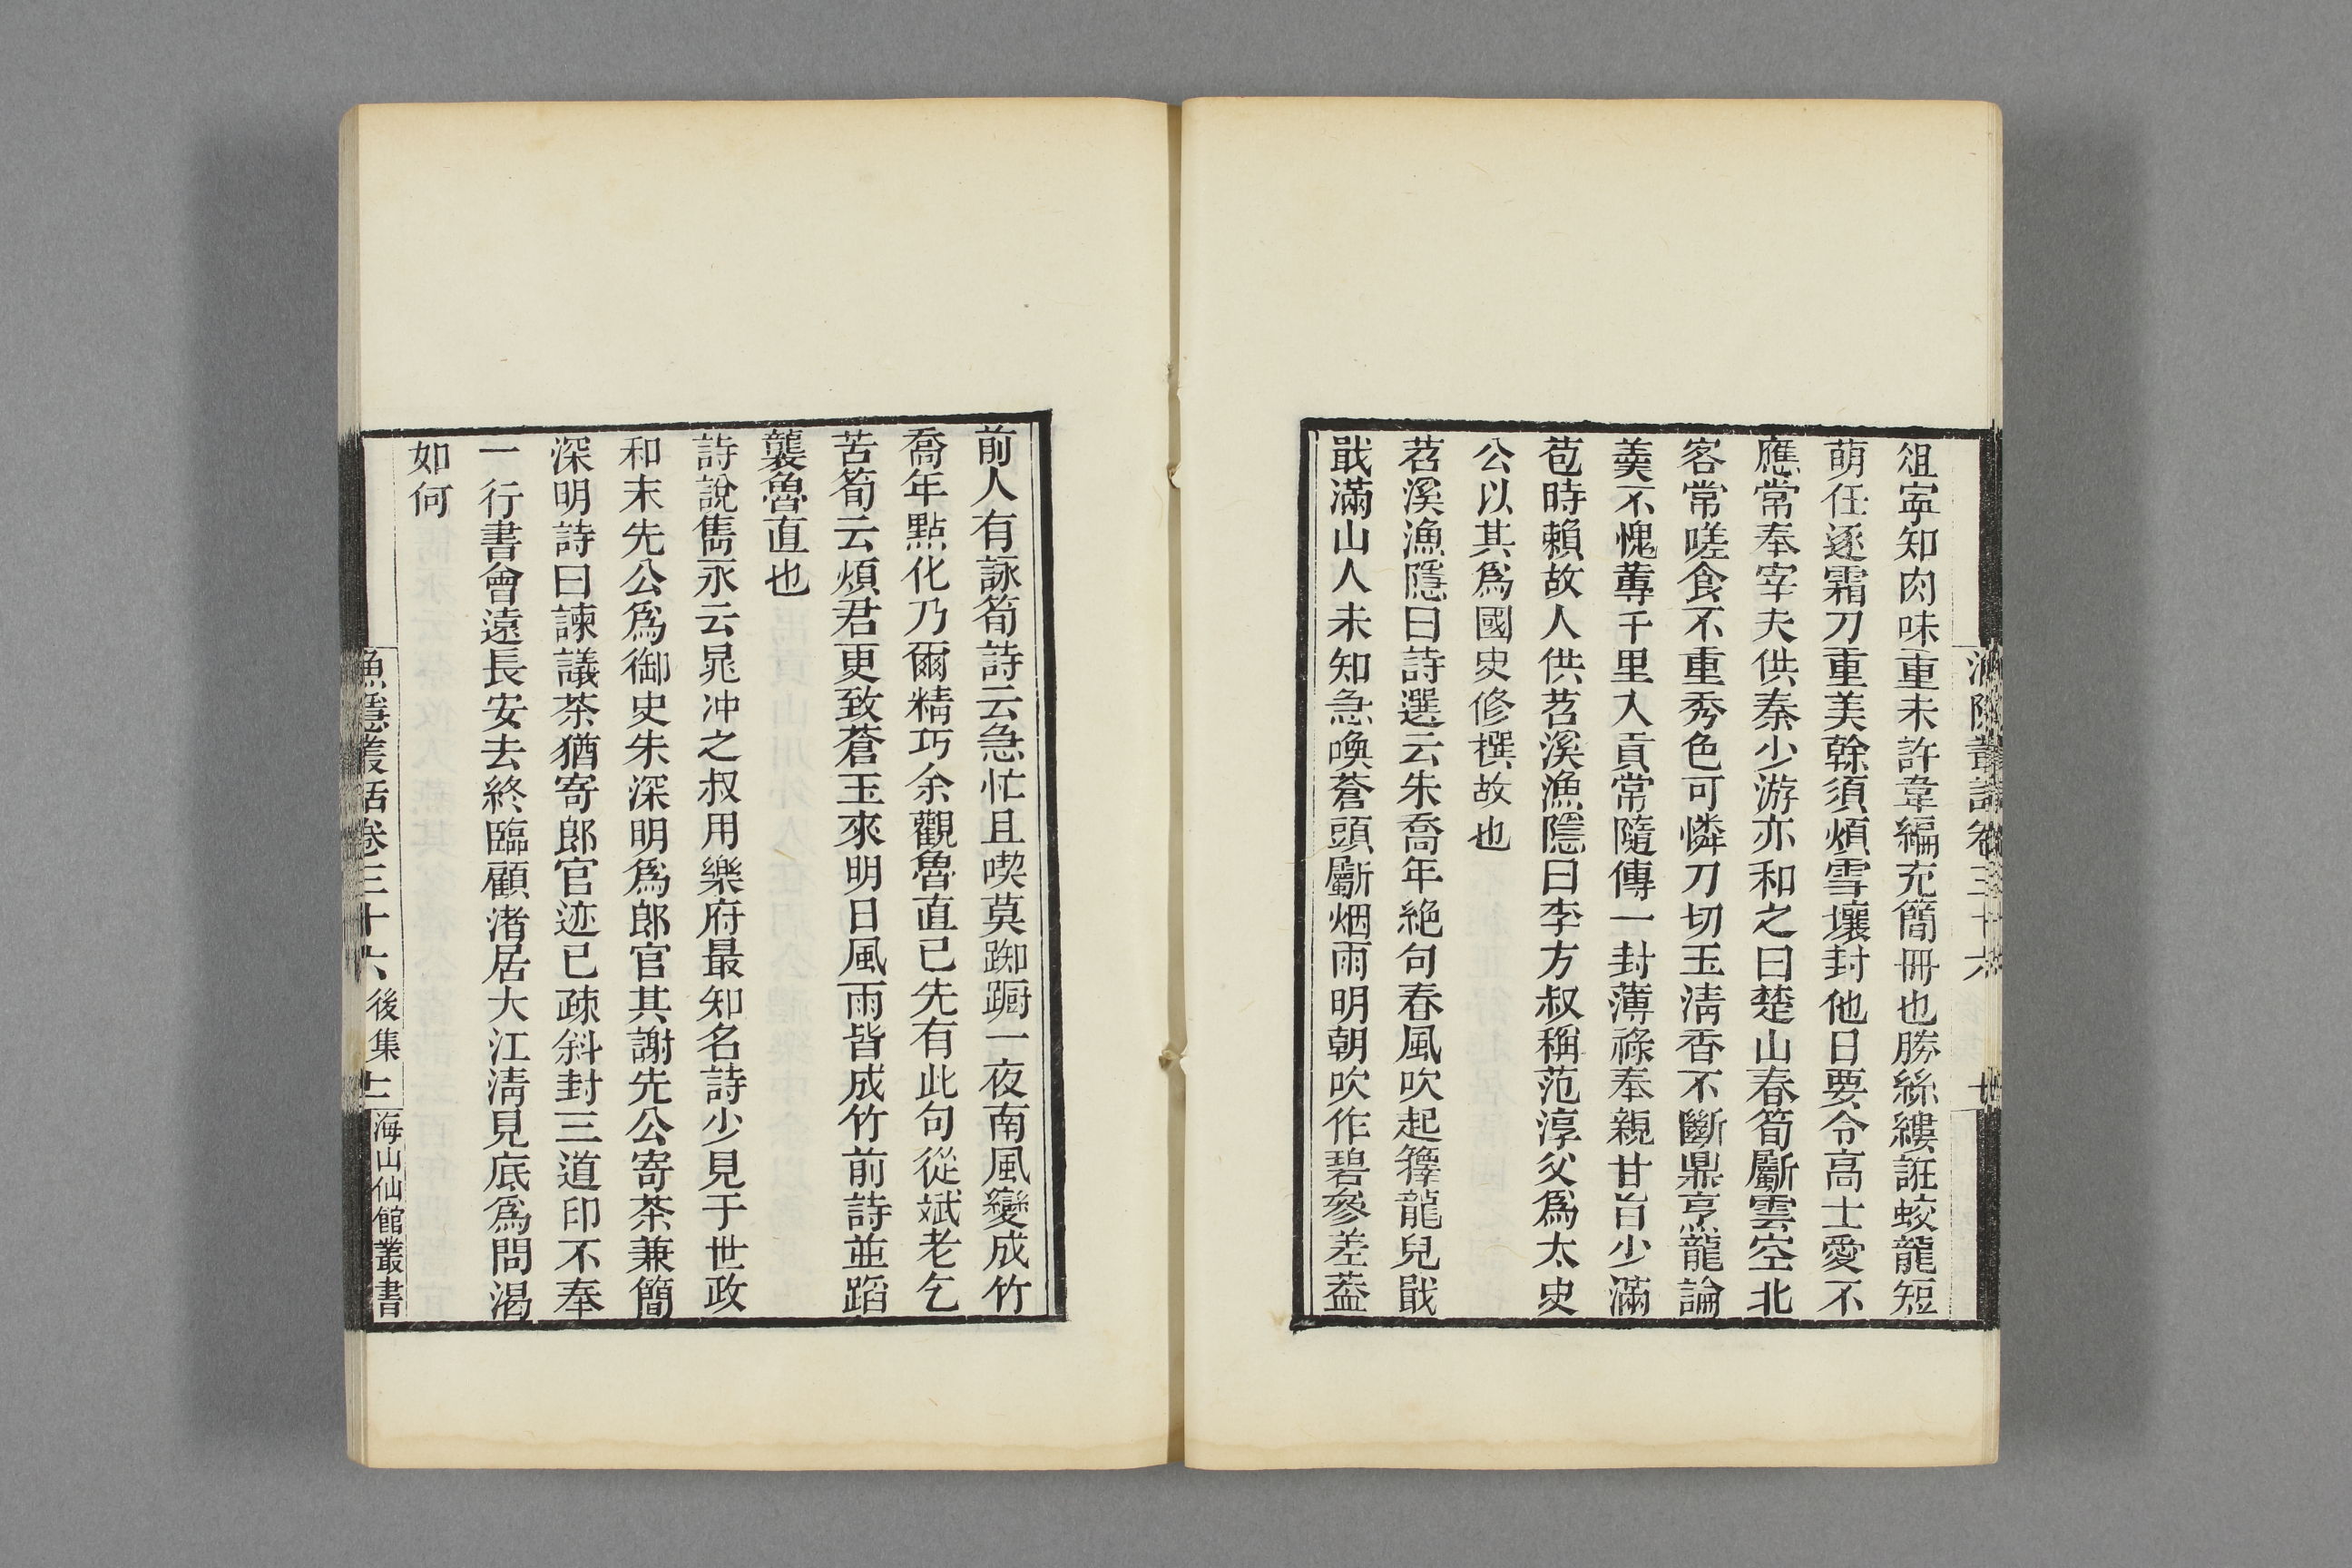 俎寧知肉味重未許韋編充簡冊也勝絲縷誑蛟龍短
萌任逐霜刀重美餘須煩雪壤封他日要令高士愛不
應常奉宰夫供秦少游亦和之曰楚山春筍斸雲空北
客常嗟食不重秀色可憐刀切玉淸香不斷鼎烹龍論
羹不愧蓴千里入貢常隨傳一封薄祿奉親甘旨少滿
苞時賴故人供苕溪漁隱曰李方叔稱范淳父爲太史
公以其爲國史修撰故也
苕溪漁隱曰詩選云朱喬年絶句春風吹起籜龍兒戢
戢滿山人未知急喚蒼頭斸烟雨明朝吹作碧參差葢
前人有詠筍詩云急忙且喫莫踟蹰一夜南風變成竹
喬年點化乃爾精巧余觀魯直已先有此句從斌老乞
苦筍云煩君更致蒼玉來明日風雨皆成竹前詩並蹈
襲魯直也
詩說雋永云晁冲之叔用樂府最知名詩少見于世政
和末先公爲御史朱深明爲郎官其謝先公寄茶兼簡
深明詩曰諫議茶猶寄郎官迹已疎斜封三道印不奉
一行書會遠長安去終臨顧渚居大江淸見底爲問渴
如何
漁隱叢話卷三十六 後集 海山仙館叢書